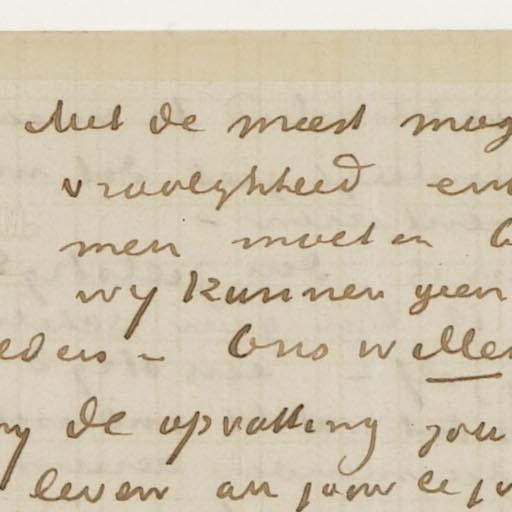 Met de meest mog
vroolykheid en
men moeten
wy kunnen geen
eders - Ons willen
de opvatting zou
leven an